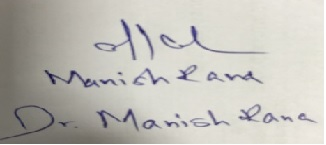 Manish Rana
Dr. Manish Rana